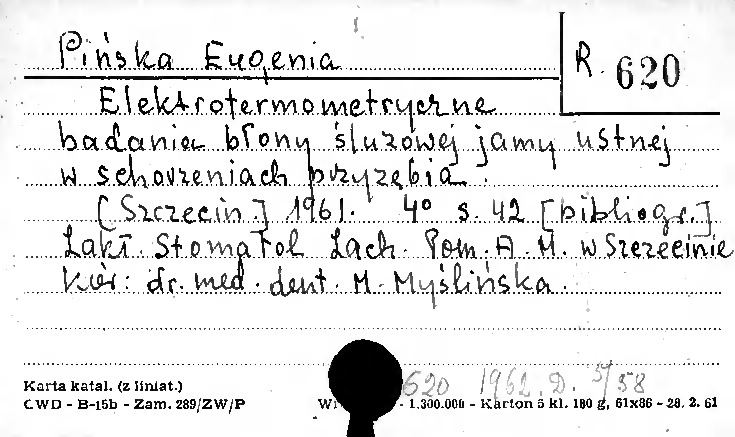 Pińska Eugenia
R 620
Elektrotermometryczne
badania błony śluzowej jamy ustnej
w schorzeniach przyzębia.
[Szczecin.] 1961. 4° s. 42 [bibliogr.]
Zakł. Stomatol Zach. Pom. A. M. w Szczecinie
Kier: dr. med. dent. M. Myślińska.
620 1962. D. 5/58
Karta katal. (z liniat.)
CWD - B-15b - Zam. 289/ZW/P - 1.300.000 - Karton 5 kl. 180 g, 61x86 - 28. 2. 61